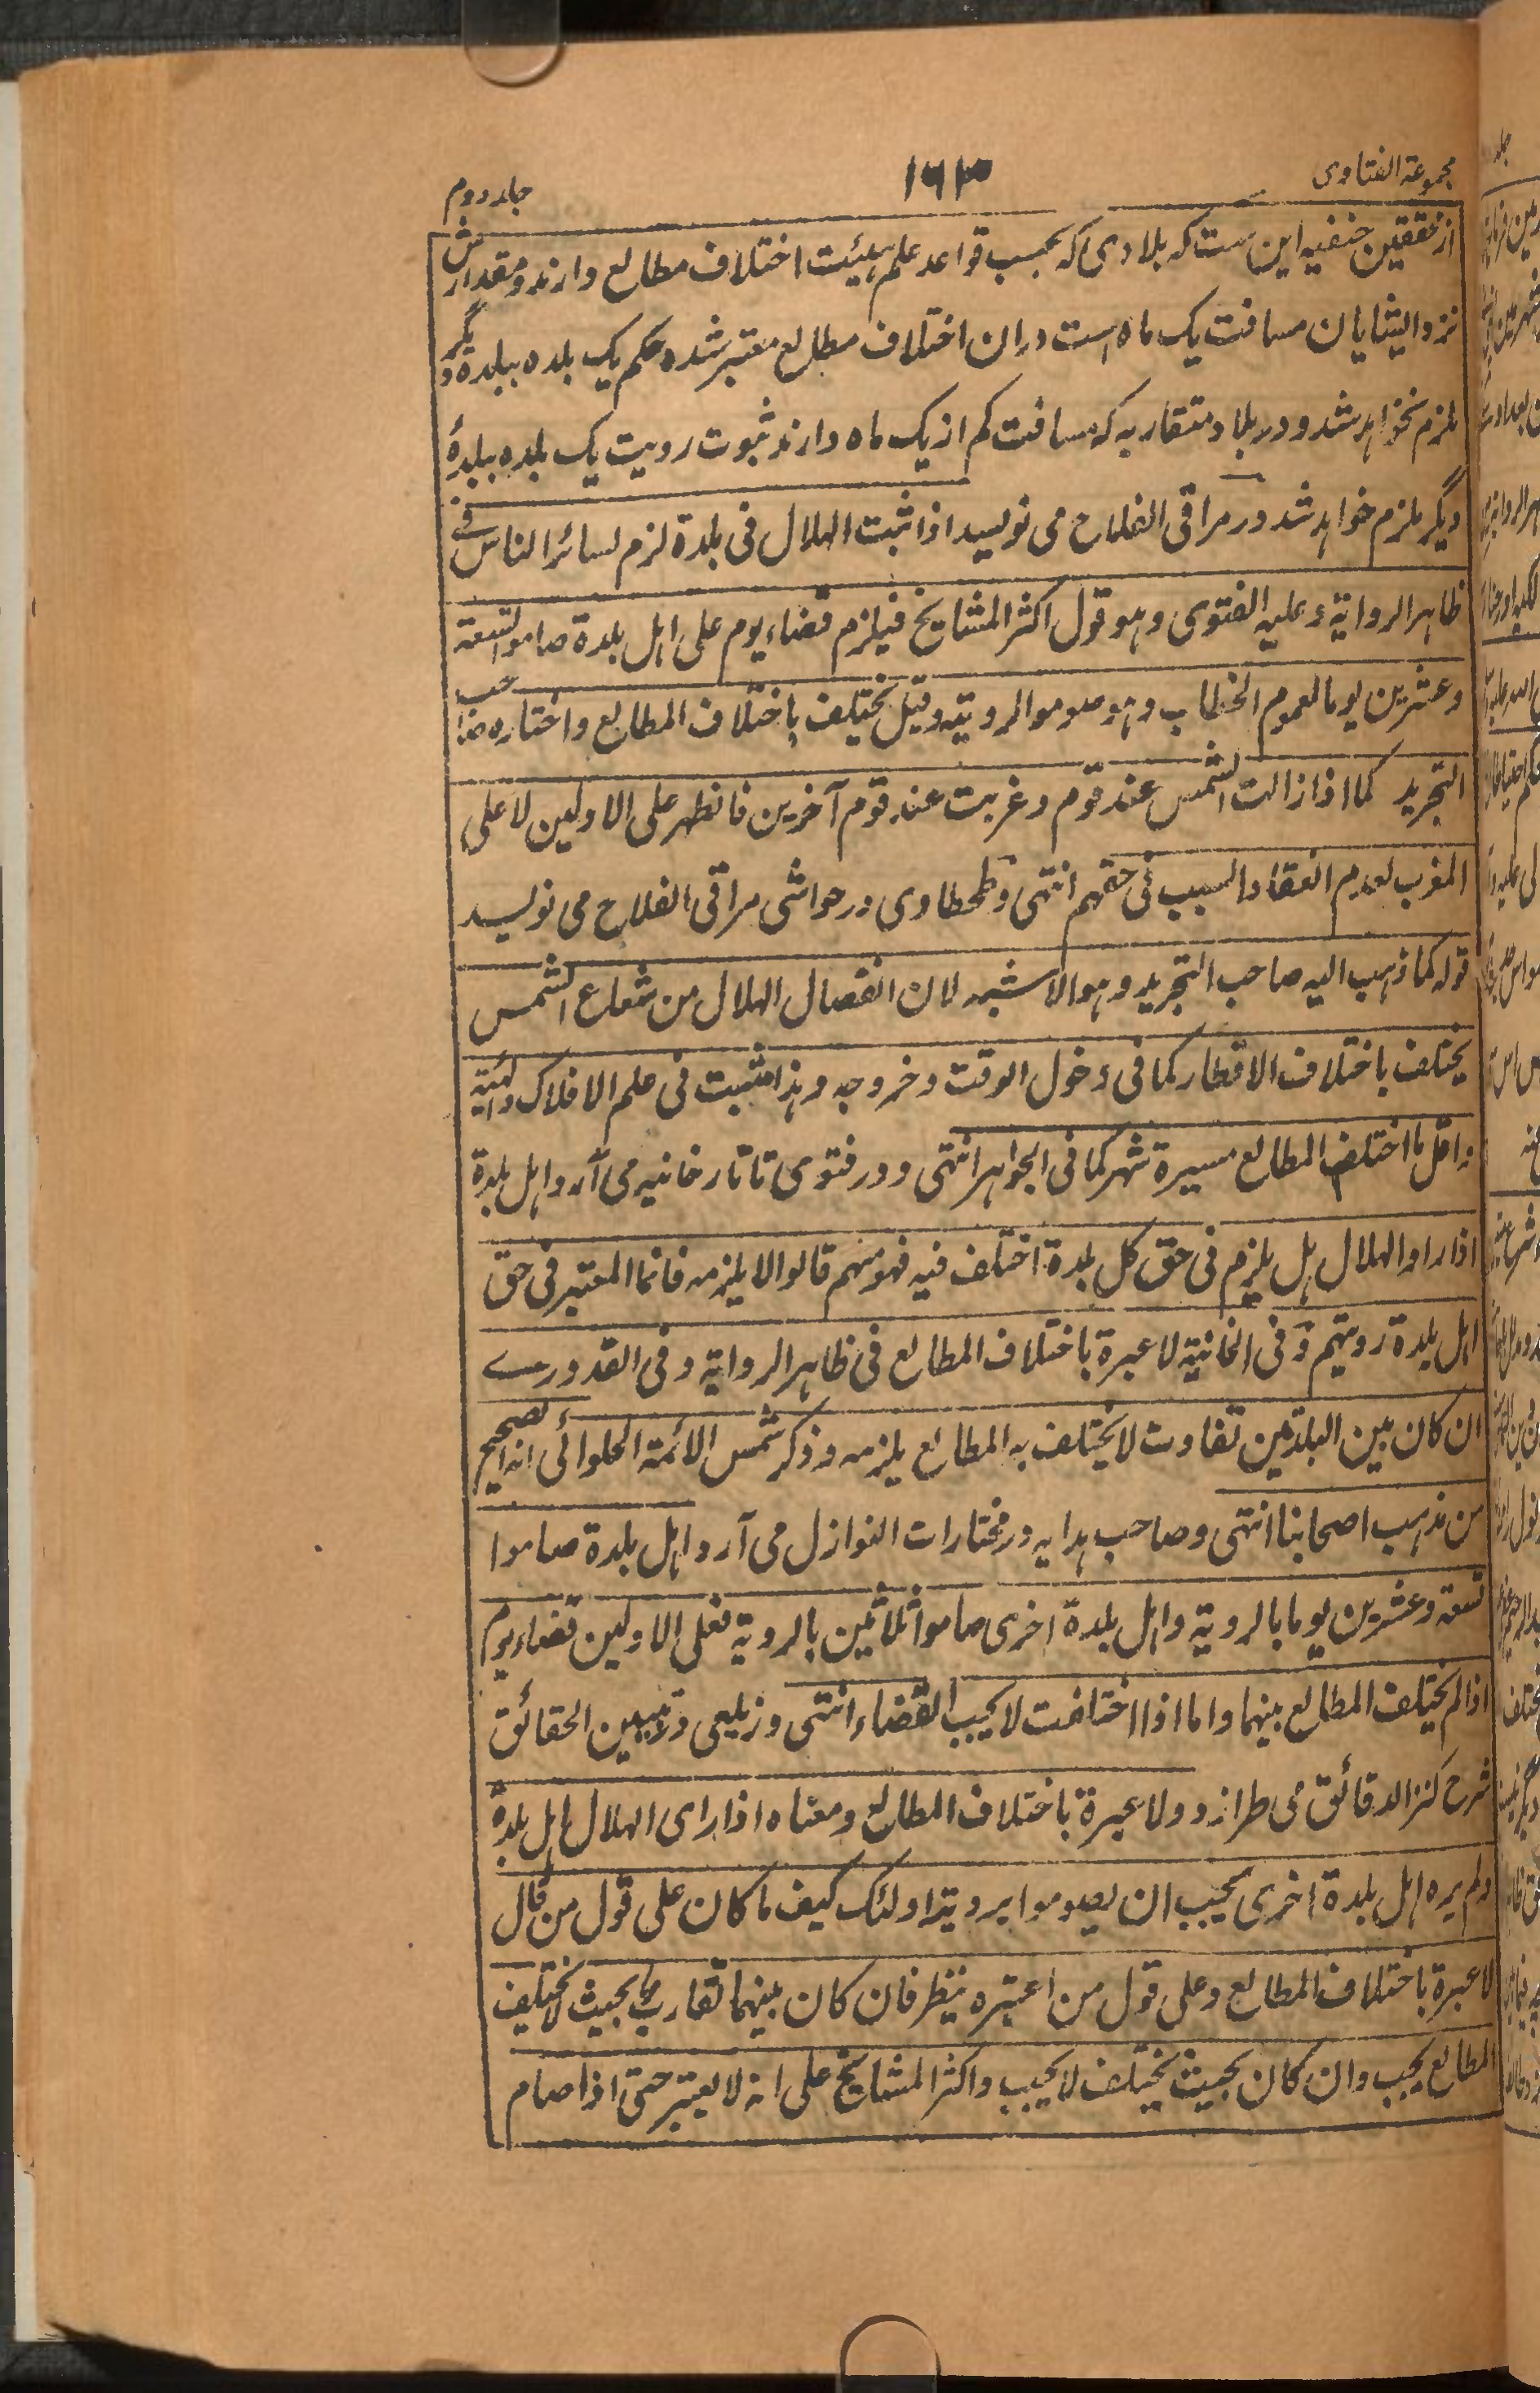 مجموعة الفتاوی
۱۶۳
جلد دوم
از محققین حنفیه این ست که بلادی که بحسب قواعد علم هیئت اختلاف مطالع دارند و مقدارش
نزد ایشایان مسافت یک ماه است دران اختلاف مطالع معتبر شده حکم یک بلده ببلدهٔ دیگر
ملزم نخواهد شد و در بلاد متقاربه که مسافت کم از یک ماه دارند ثبوت رویت یک بلده ببلدهٔ
دیگر ملزم خواهد شد در مراقی الفلاح می نویسد اذا ثبت الهلال فی بلدة لزم لسائر الناس فے
ظاهر الروایة وعلیه الفتوی وهو قول اکثر المشایخ فیلزم قضاء یوم علی اهل بلدة صاموا تسعة
وعشرین یوما لعموم الخطاب وهو صوموا لرویته وقیل یختلف باختلاف المطالع واختاره صاحب
التجرید کما اذا زالت الشمس عند قوم وغربت عند قوم آخرین فالظهر علی الاولین لا علی
المغرب لعدم انعقاد السبب فی حقهم انتهی و طحطاوی در حواشی مراقی الفلاح می نویسد
قوله کما ذهب الیه صاحب التجرید وهو الاشبه لان انفصال الهلال من شعاع الشمس
یختلف باختلاف الاقطار کما فی دخول الوقت وخروجه وهذا مثبت فی علم الافلاک والهیئة
واقل ما اختلف المطالع مسیرة شهر کما فی الجواهر انتهی و در فتوی تاتارخانیه می آرد اهل بلدة
اذا راوا الهلال هل یلزم فی حق کل بلدة اختلف فیه فمنهم قالوا لا یلزمه فانما المعتبر فی حق
اهل بلدة رویتهم وفی الخانیة لا عبرة باختلاف المطالع فی ظاهر الروایة وفی القدورے
ان کان بین البلدتین تفاوت لا یختلف به المطالع یلزمه وذکر شمس الائمة الحلوائی انه الصحیح
من مذهب اصحابنا انتهی و صاحب هدایه در مختارات النوازل می آرد اهل بلدة صاموا
تسعة وعشرین یوما بالرویة واهل بلدة اخری صاموا ثلاثین بالرویة فعلی الاولین قضاء یوم
اذا لم یختلف المطالع بینهما واما اذا اختلفت لا یجب القضاء انتهی و زیلعی در تبیین الحقائق
شرح کنز الدقائق می طرازد ولا عبرة باختلاف المطالع ومعناه اذا رای الهلال اهل بلدة
ولم یره اهل بلدة اخری یجب ان یصوموا برویة اولئک کیف ما کان علی قول من قال
لا عبرة باختلاف المطالع وعلی قول من اعتبره ینظر فان کان بینهما تقارب بحیث لا یختلف
المطالع یجب وان کان بحیث یختلف لا یجب واکثر المشایخ علی انه لا یعتبر حتی اذا صام